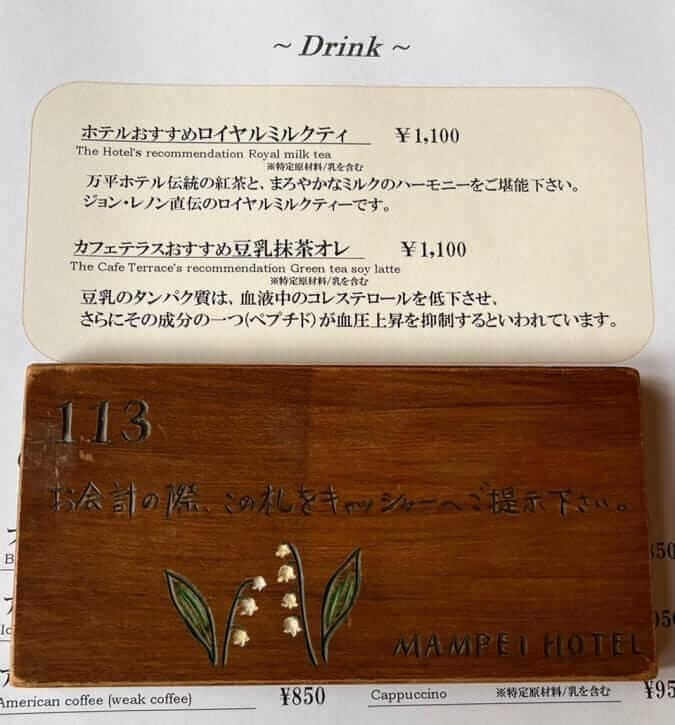 ~ Drink ~
ホテルおすすめロイヤルミルクティ ￥1,100
The Hotel's recommendation Royal milk tea
※特定原材料/乳を含む
万平ホテル伝統の紅茶と、まろやかなミルクのハーモニーをご堪能下さい。
ジョン・レノン直伝のロイヤルミルクティーです。
カフェテラスおすすめ豆乳抹茶オレ ￥1,100
The Cafe Terrace's recommendation Green tea soy latte
※特定原材料/乳を含む
豆乳のタンパク質は、血液中のコレステロールを低下させ、
さらにその成分の一つ(ペプチド)が血圧上昇を抑制するといわれています。
113
お会計の際、この札をキャッシャーへご提示下さい。
MAMPEI HOTEL
American coffee (weak coffee) ¥850 Cappuccino ※特定原材料/乳を含む